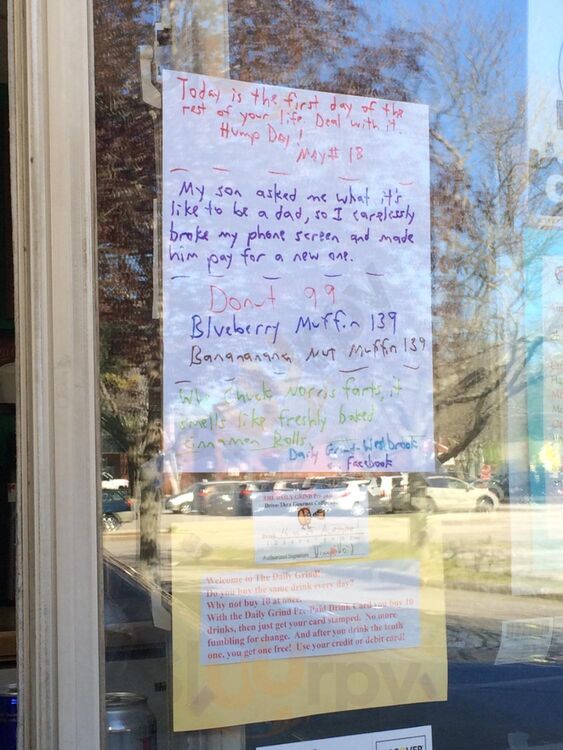 Today is the first day of the
rest of your life. Deal with it.
Hump Day!
MAY# 18
My son asked me what it's
like to be a dad, so I carelessly
broke my phone screen and made
him pay for a new one.
Donut 99
Blueberry Muffin 139
Banananana Nut Muffin 139
When Chuck Norris farts, it
smells like freshly baked
Cinnamon Rolls.
Daily Grind-Westbrook
Facebook
THE DAILY GRIND
Drive-Thru Gourmet
Authorized Signature
Welcome to The Daily Grind!
Do you buy the same drink every day?
Why not buy 10 at once.
With the Daily Grind Pre-Paid Drink Card you buy 10
drinks, then just get your card stamped. No more
fumbling for change. And after you drink the tenth
one, you get one free! Use your credit or debit card!